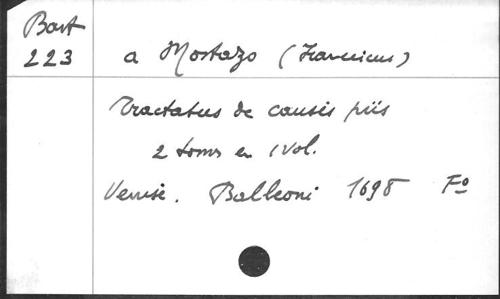 Bart
223
a Mostazo (Franciscus)
Tractatus de causis piis
2 toms en 1 vol.
Venise. Balleoni 1698 Fo